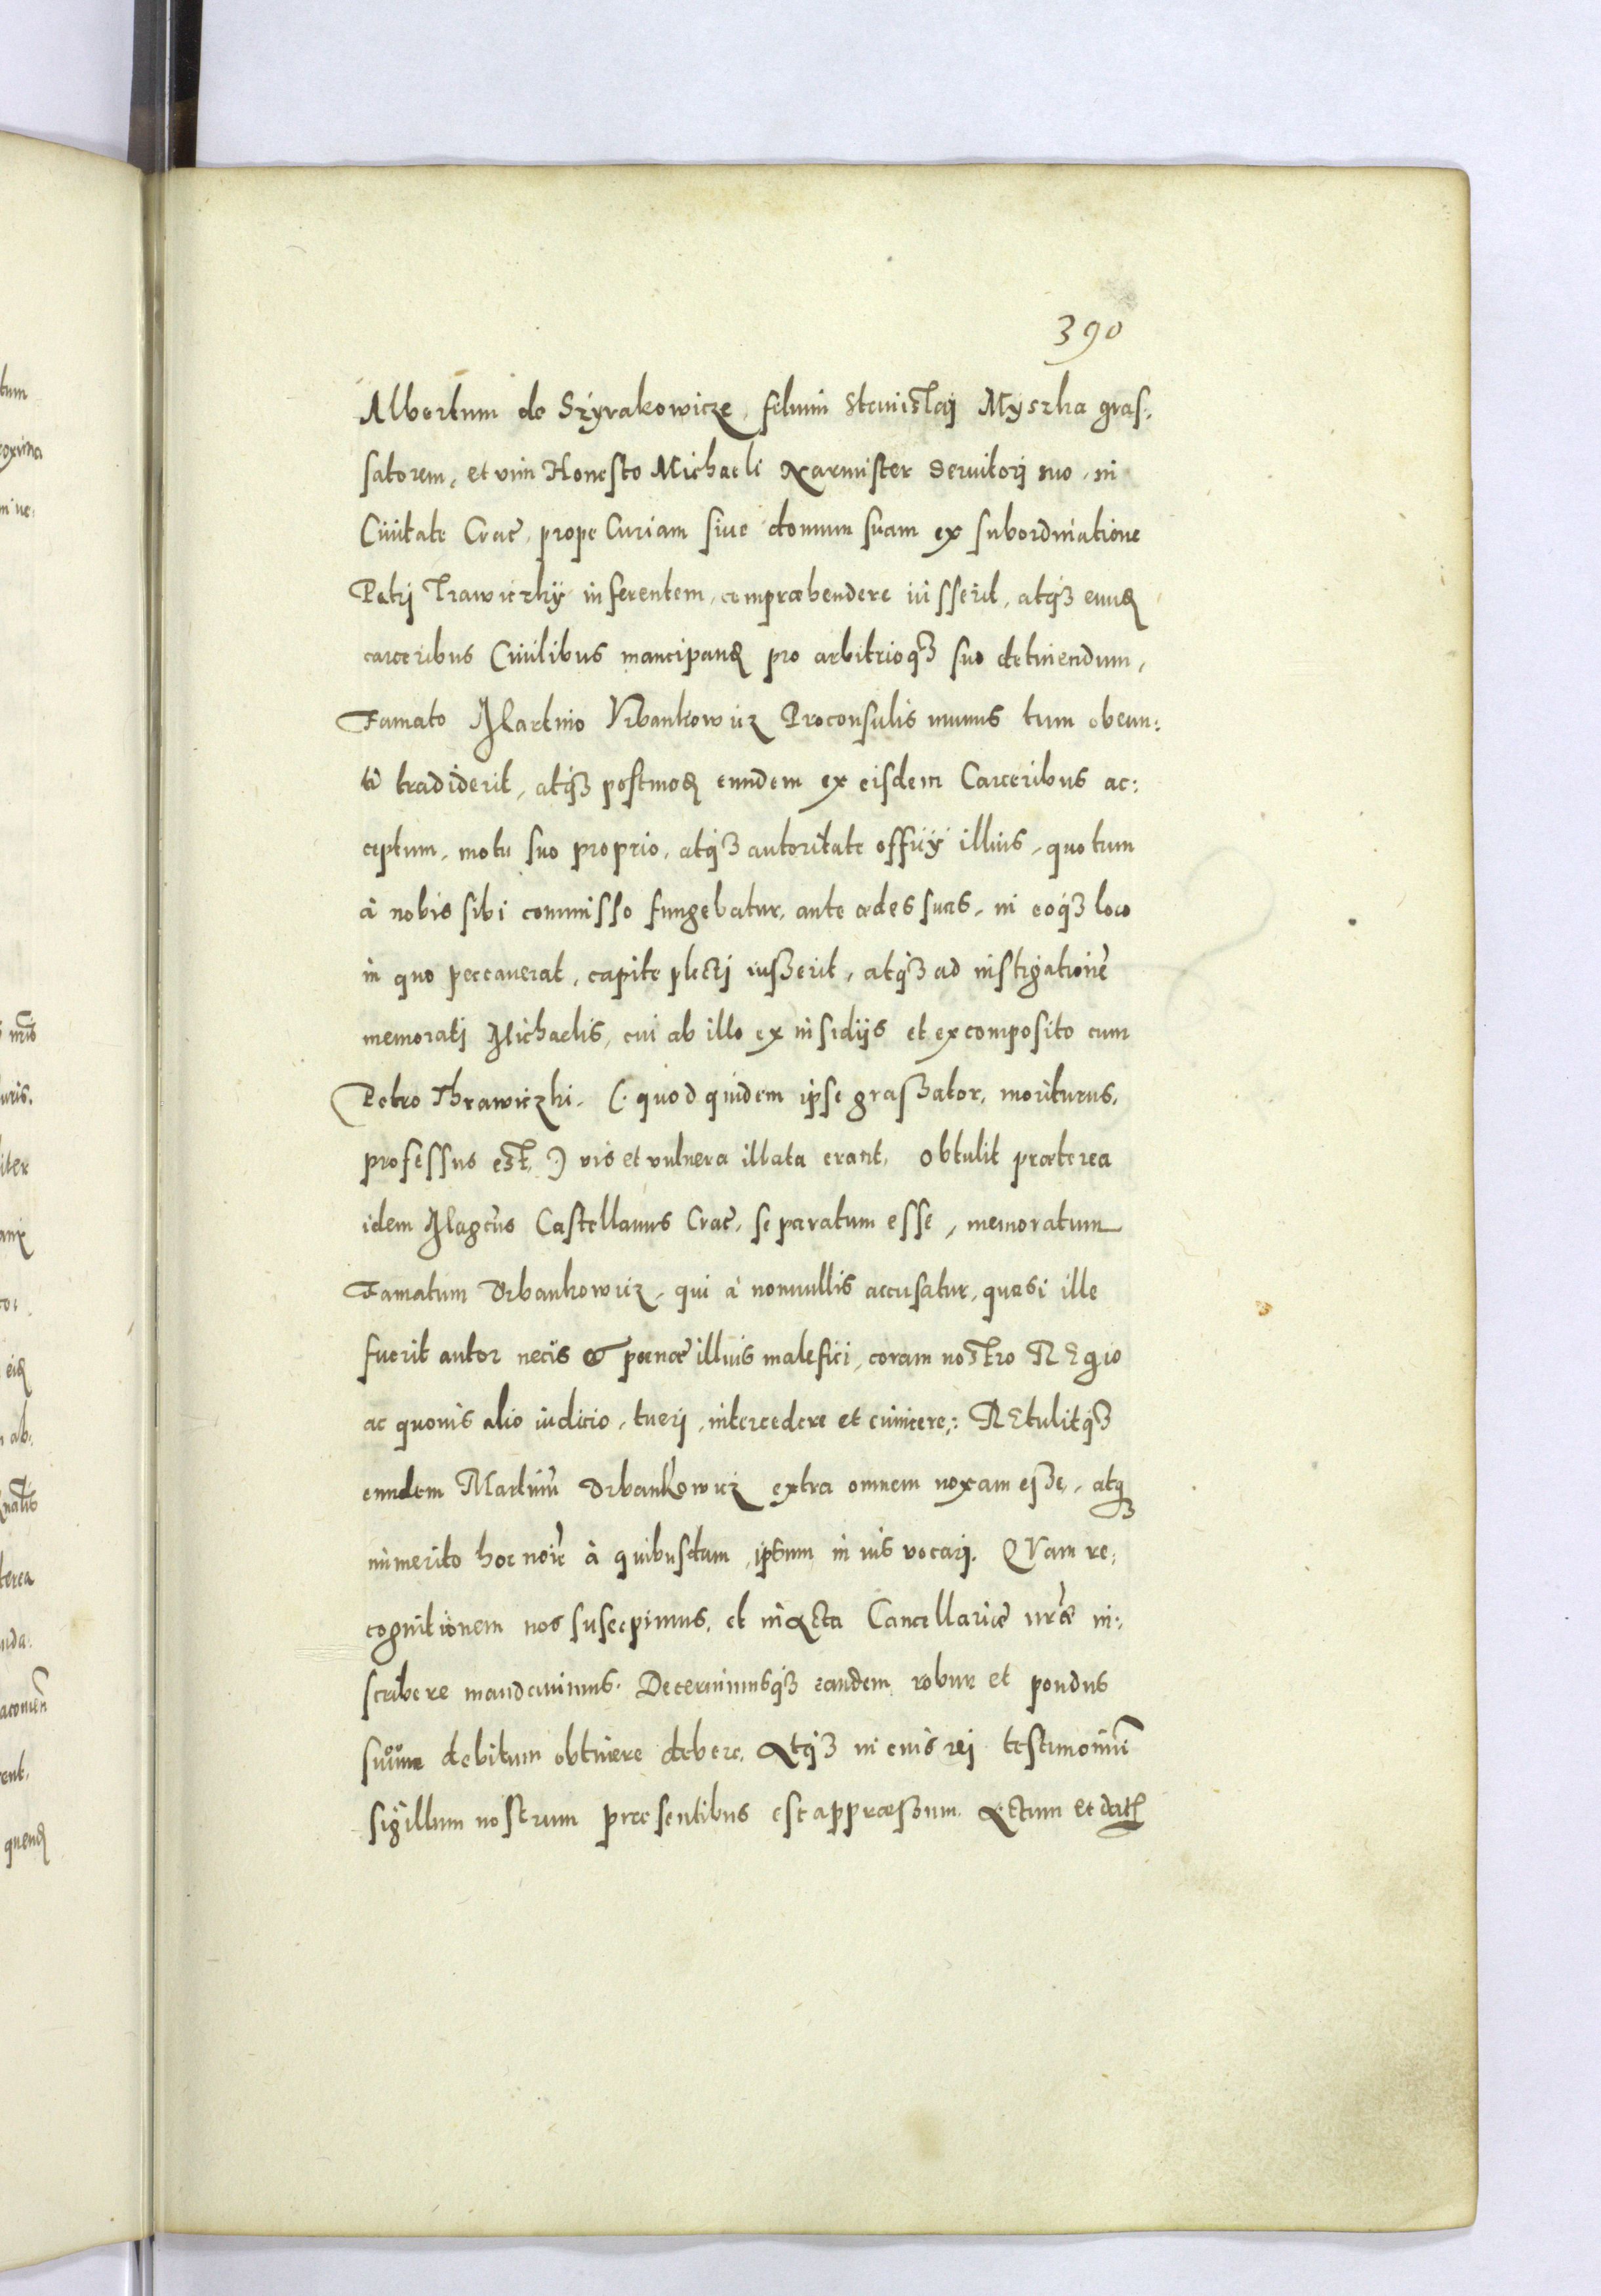 390
Albertum de Szyrakowicze, filium Stanislaj Myszka gras,,
satorem, et vim Honesto Michaeli Xarmister Seruitorj suo, in
Ciuitate Crac̃, prope Curiam siue domum suam ex subordinatione
Petrj Trawiczky inferentem, compraehendere iusserit, atq3 eund
carceribus Ciuilibus mancipand pro arbitrioq3 suo detinendum,
Famato Martino Vrbankowicz Proconsulis munus tum obeun:
ti tradiderit, atq3 postmod eundem ex eisdem Carceribus ac:
ceptum, motu suo proprio, atq3 autoritate officÿ illius, quo tum
à nobis sibi commisso fungebatur, ante aedes suas, in eoq3 loco
in quo peccauerat, capite plectj iusserit, atq3 ad instigationẽ
memoratj Michaelis, cui ab illo ex insidijs et ex composito cum
Petro Thrawiczki. (. quod quidem ipse grassator, moriturus,
professus est, .) vis et vulnera illata erant, obtulit praeterea
idem Magcũs Castellanus Crac̃, se paratum esse, memoratum
Famatum Vrbankowicz, qui à nonnullis accusatur, quasi ille
fuerit autor necis & poenae illius malefici, coram nostro REgio
ac quouis alio iudicio, tuerj, intercedere et euincere,: REtulitq3
eundem Martinũ Vrbankowicz extra omnem noxam esse, atq3
immerito hoc noĩe à quibusdam, ipsum in ius vocarj. QVam re,,
cognitionem nos suscepimus, et in Acta Cancellariae nr̃ae in,,
scribere mandauimus. Decernimusq3 eandem robur et pondus
suum debitum obtinere debere, Atq3 in cuius rej testimoniũ
sigillum nostrum praesentibus est appraessum. Actum et dat